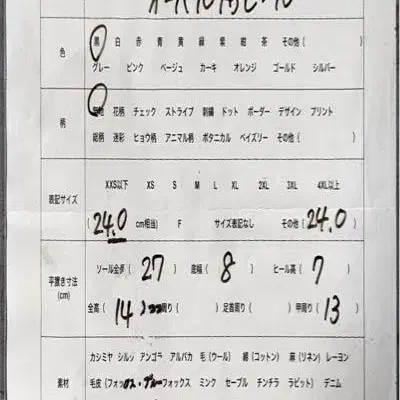 オープントゥヒール
色
黒 白 赤 青 黄 緑 紫 紺 茶 その他（ ）
グレー ピンク ベージュ カーキ オレンジ ゴールド シルバー
柄
無地 花柄 チェック ストライプ 刺繍 ドット ボーダー デザイン プリント
総柄 迷彩 ヒョウ柄 アニマル柄 ボタニカル ペイズリー その他（ ）
表記サイズ
XXS以下 XS S M L XL 2XL 3XL 4XL以上
（24.0 cm相当） F サイズ表記なし その他（24.0）
平置き寸法
(cm)
ソール全長（ 27 ） 底幅（ 8 ） ヒール高（ 7 ）
全高（ 14 ） 周り（ ） 足首周り（ ） 甲周り（ 13 ）
素材
カシミヤ シルク アンゴラ アルパカ 毛（ウール） 綿（コットン） 麻（リネン） レーヨン
毛皮（フォックス・ブルーフォックス ミンク セーブル チンチラ ラビット） デニム